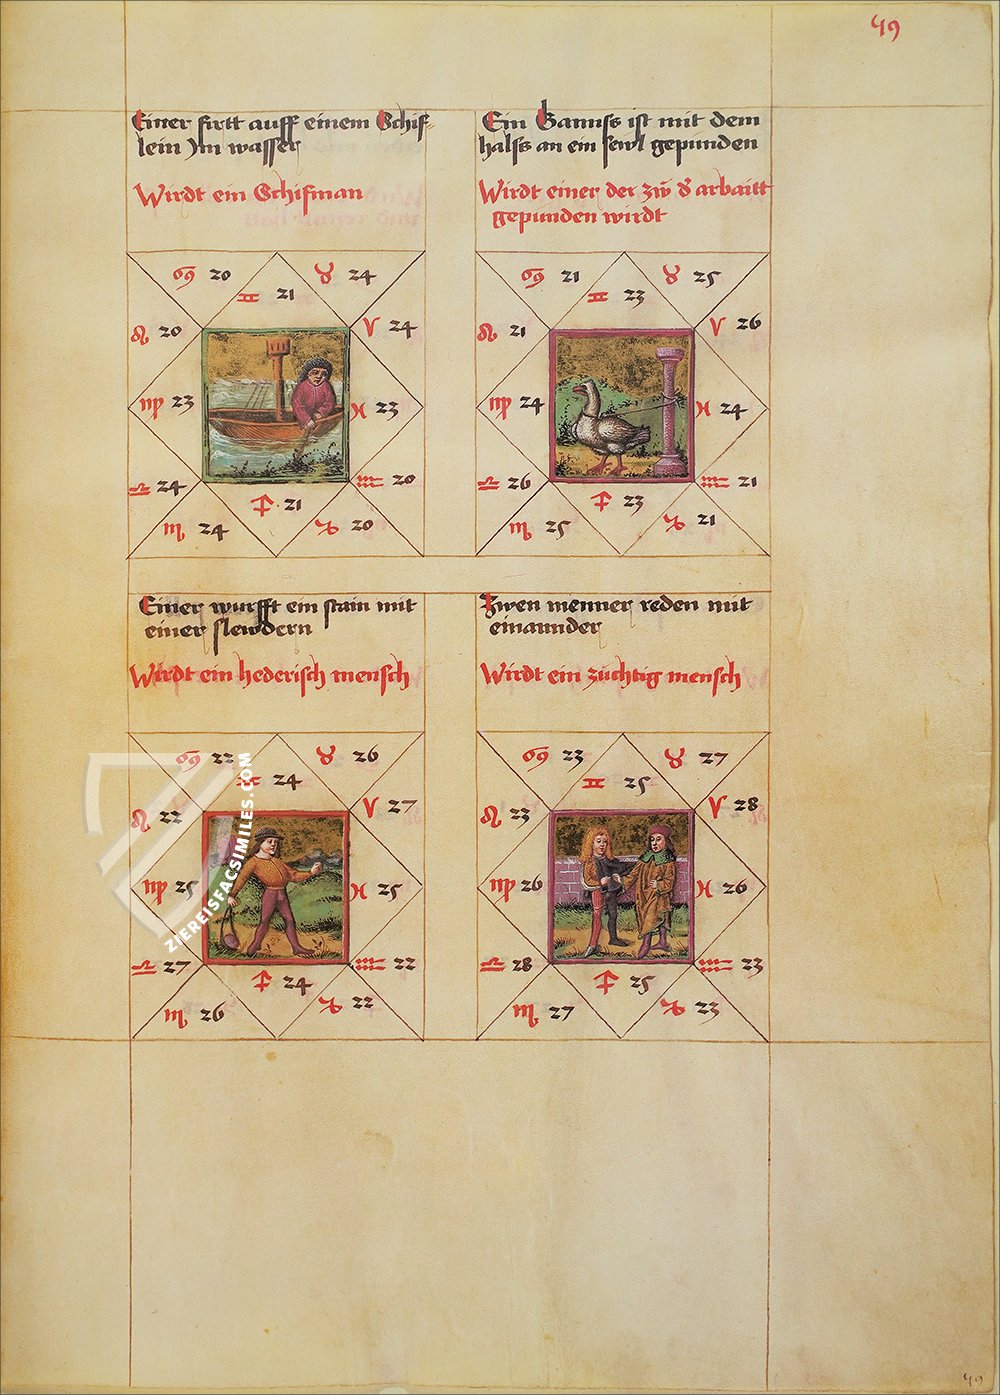 49
Einer fırtt auff einem Schif=
lein Jm wasser
Wirdt ein Schifman
♋ 20 ♊ 21 ♉ 24
♌ 20 ♈ 24
♍ 23 ♓ 23
♎ 24 ♒ 20
♏ 24 ♐ 21 ♑ 20
Ein Gannss ist mit dem
halss an ein sewl gepunden
Wirdt einer der zw̃ d arbaitt
gepunden wirdt
♋ 21 ♊ 23 ♉ 25
♌ 21 ♈ 26
♍ 24 ♓ 24
♎ 26 ♒ 21
♏ 25 ♐ 23 ♑ 21
Einer wurfft ein stain mit
einer slewdern
Wirdt ein hederisch mensch
♋ 22 ♊ 24 ♉ 26
♌ 22 ♈ 27
♍ 25 ♓ 25
♎ 27 ♒ 22
♏ 26 ♐ 24 ♑ 22
Zwen menner reden mit
einannder
Wirdt ein züchtig mensch
♋ 23 ♊ 25 ♉ 27
♌ 23 ♈ 28
♍ 26 ♓ 26
♎ 28 ♒ 23
♏ 27 ♐ 25 ♑ 23
ZIEREISFACSIMILES.COM
49